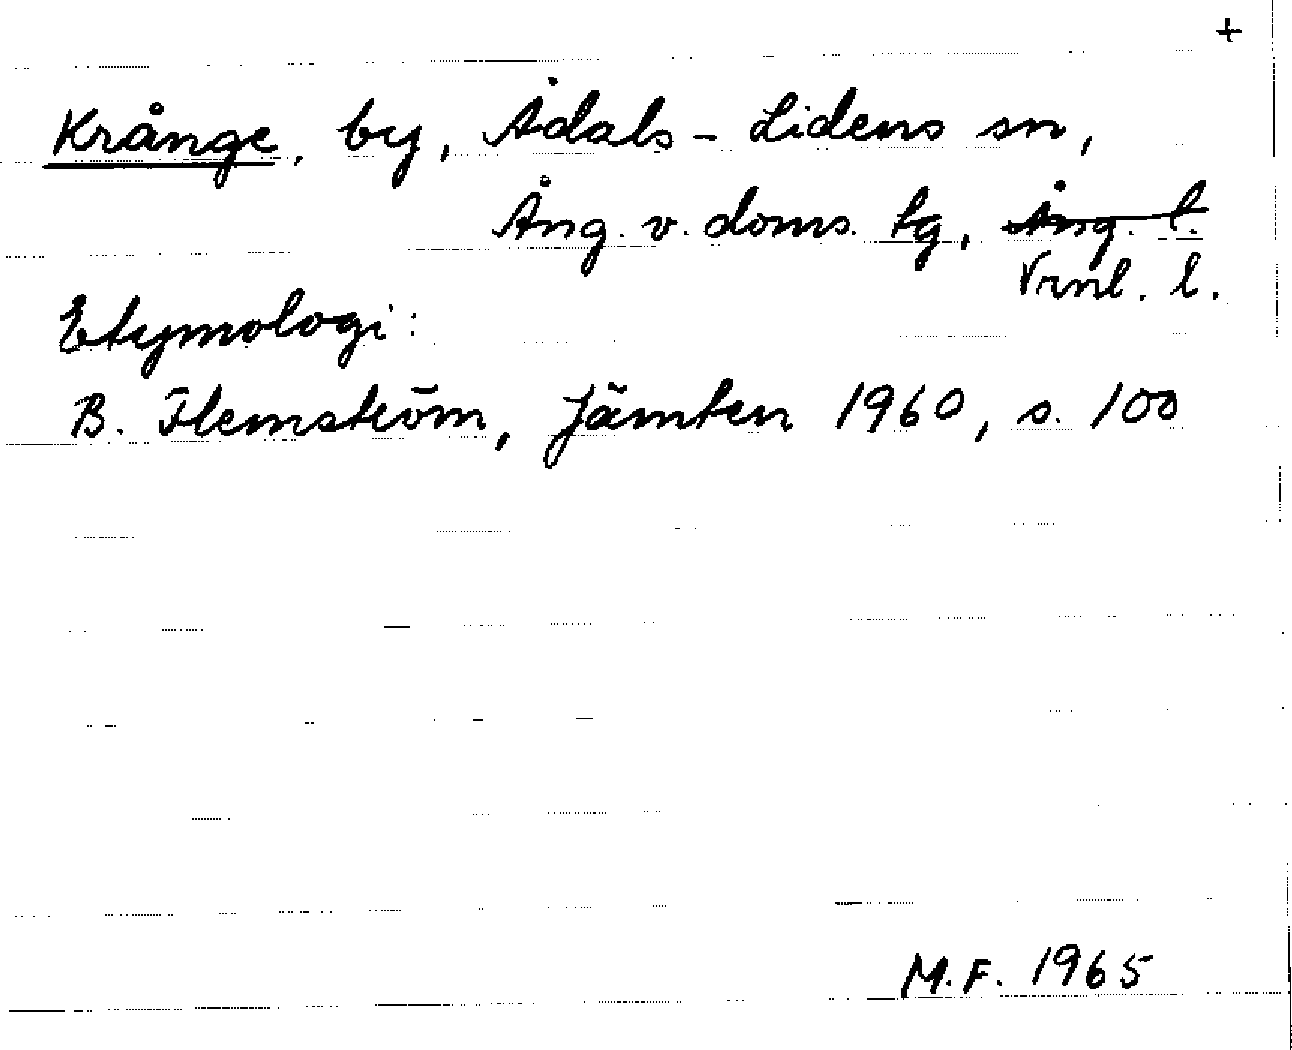 +
Krånge, by, Ådals-Lidens sn,
Ång. v. doms. tg, Ång. l.
Vrnl. l.
Etymologi:
B. Flemström, Jämten 1960, s. 100
M.F. 1965